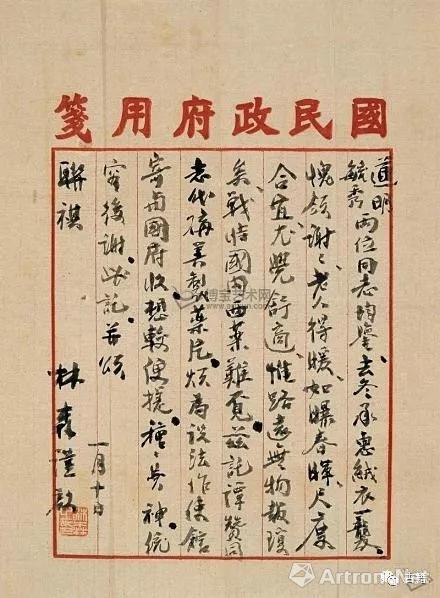 國民政府用箋
道明
毓秀兩位同志均鑒去冬承惠絨衣一襲
愧領謝〻老人得暖如曝春暉尺度
合宜尤覺舒適惟路遠無物報瓊
矣戰時國內西藥難覓茲託譚贊同
志代購美製藥片煩為設法作使館
寄由國府收想較便捷種〻費神統
容後謝此託并頌
聯祺 林森謹啟
一月十日
博宝艺术网
Artron.Net